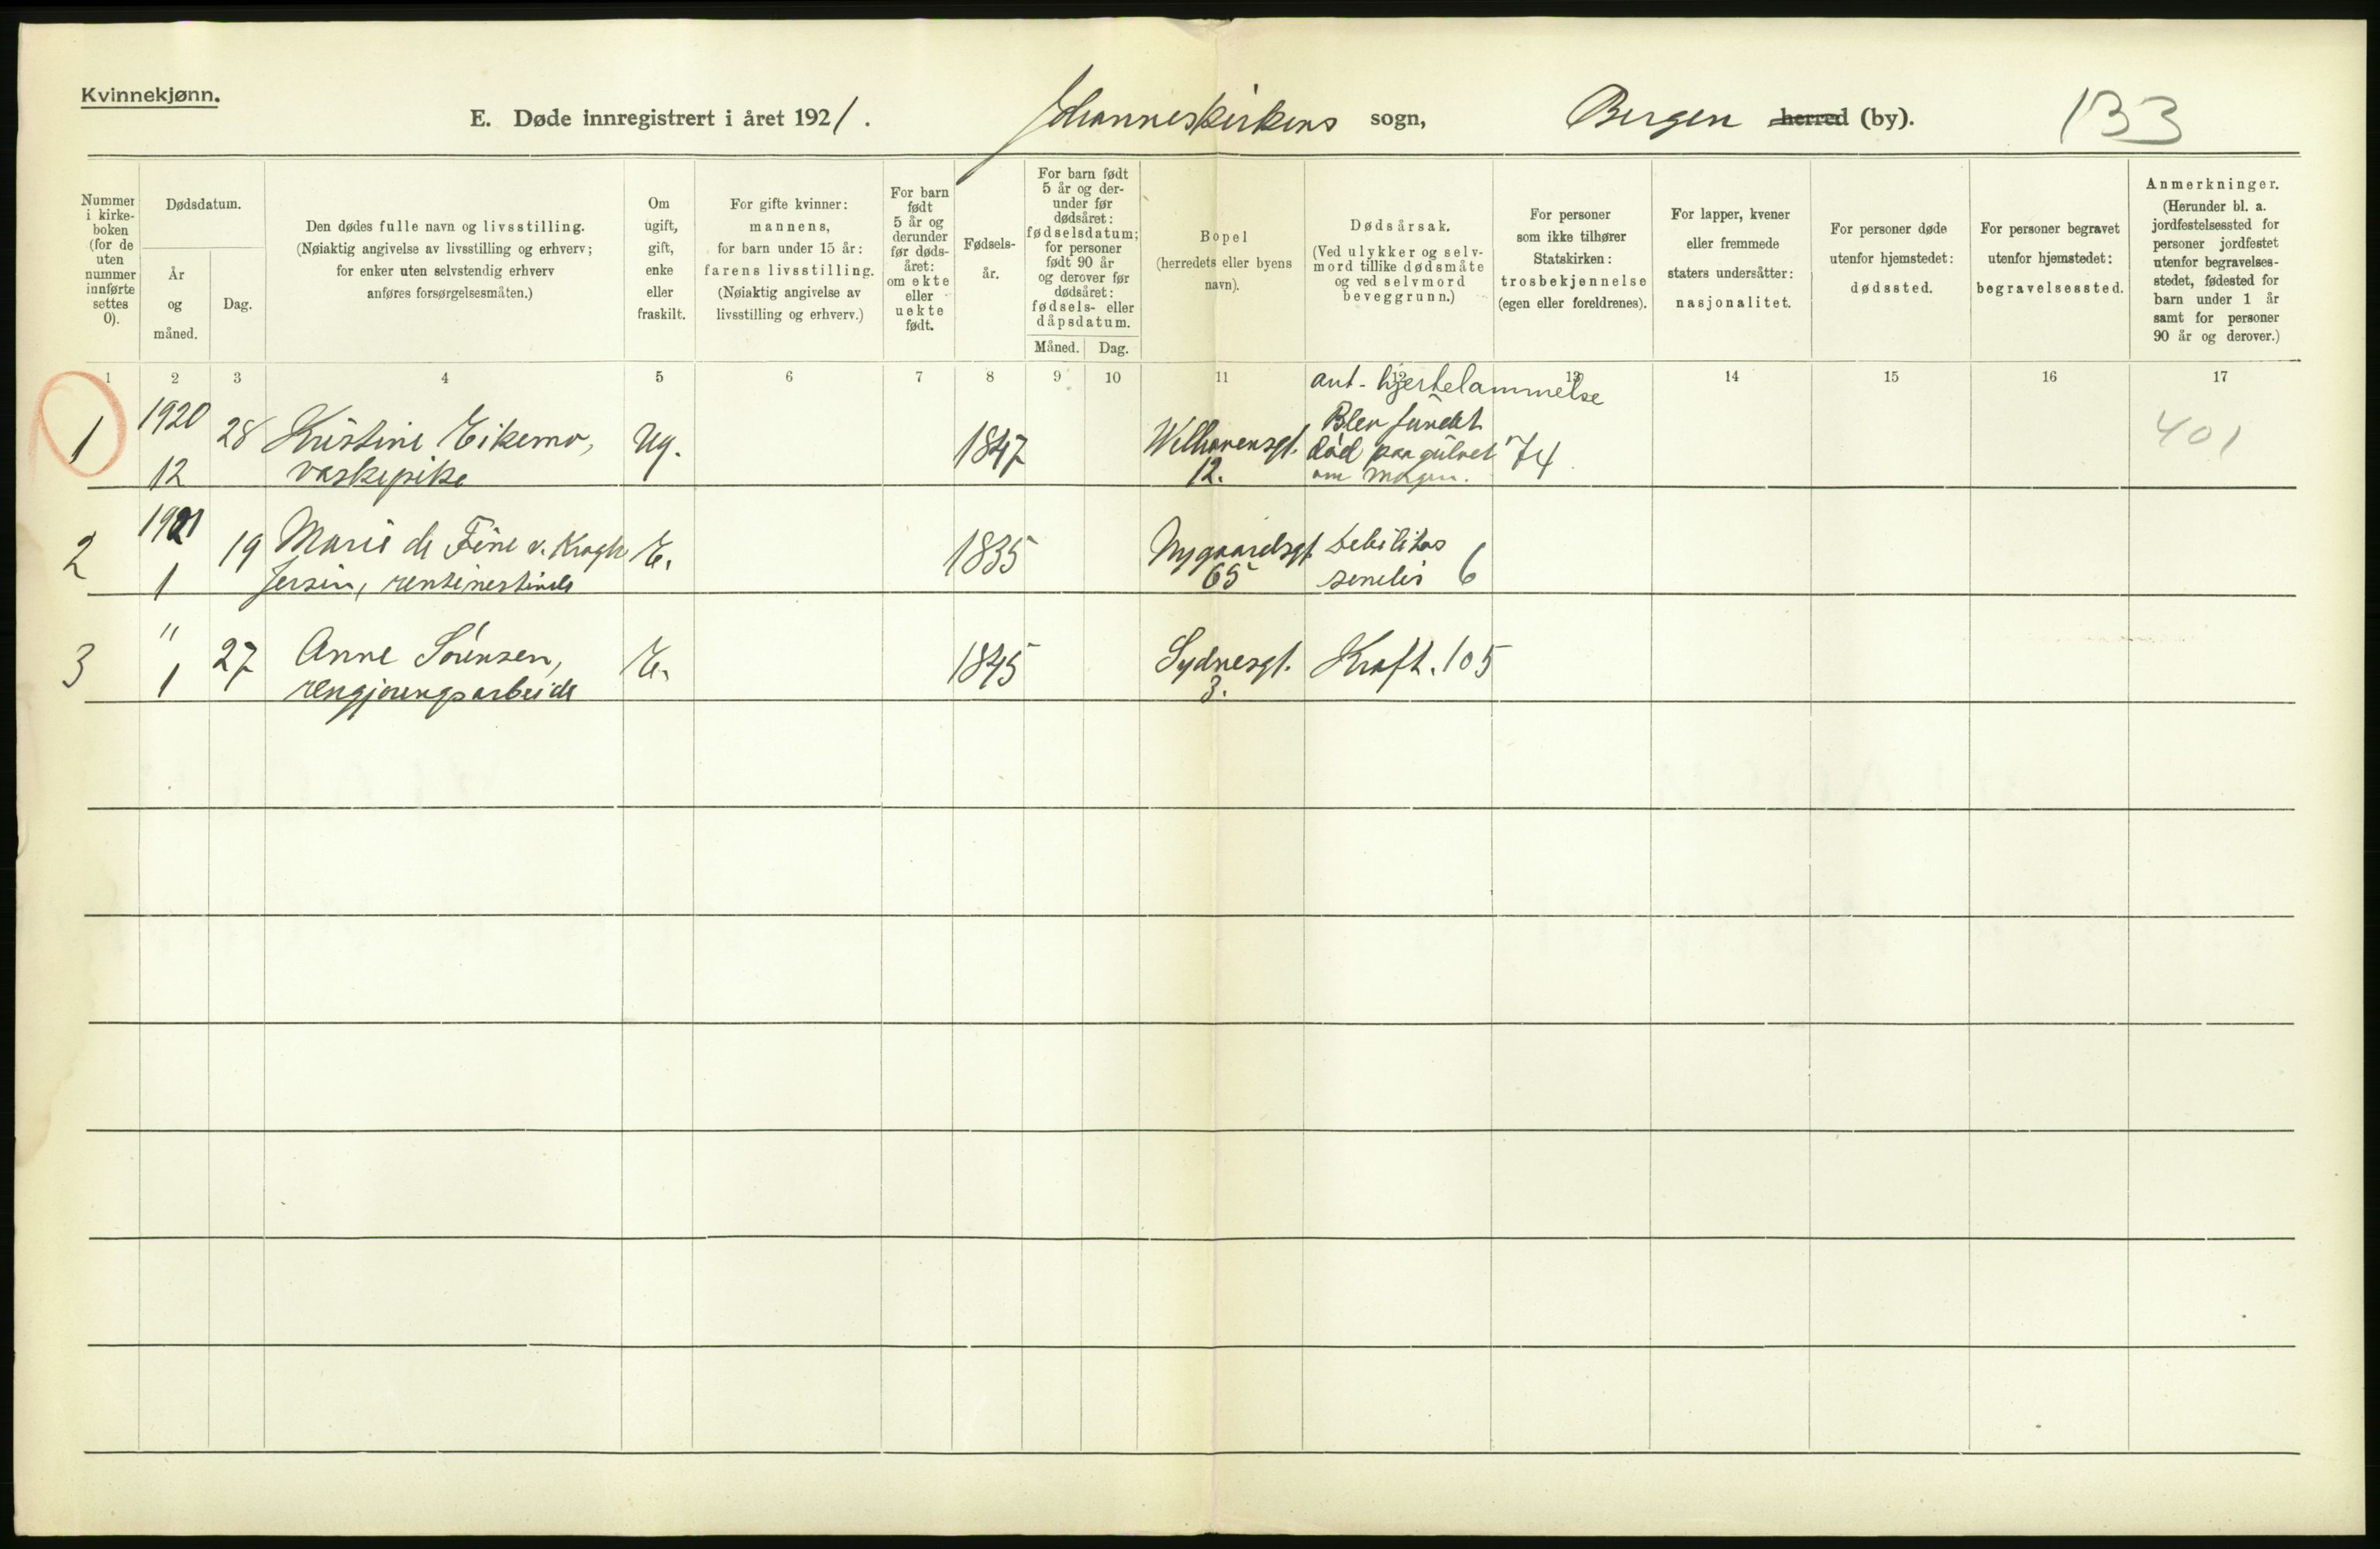 Kvinnekjønn.
E. Døde innregistrert i året 1921. Johanneskirkens sogn, Bergen herred (by). 133
Nummer i kirkeboken (for de uten nummer innførte settes 0).
Dødsdatum.
År og måned.
Dag.
Den dødes fulle navn og livsstilling.
(Nøiaktig angivelse av livsstilling og erhverv;
for enker uten selvstendig erhverv
anføres forsørgelsesmåten.)
Om ugift, gift, enke eller fraskilt.
For gifte kvinner:
mannens,
for barn under 15 år:
farens livsstilling.
(Nøiaktig angivelse av
livsstilling og erhverv.)
For barn født 5 år og derunder før dødsåret: om ekte eller uekte født.
Fødselsår.
For barn født 5 år og derunder før dødsåret: fødselsdatum; for personer født 90 år og derover før dødsåret: fødsels- eller dåpsdatum.
Måned. Dag.
Bopel
(herredets eller byens
navn).
Dødsårsak.
(Ved ulykker og selvmord tillike dødsmåte og ved selvmord beveggrunn.)
For personer
som ikke tilhører
Statskirken:
trosbekjennelse
(egen eller foreldrenes).
For lapper, kvener
eller fremmede
staters undersåtter:
nasjonalitet.
For personer døde
utenfor hjemstedet:
dødssted.
For personer begravet
utenfor hjemstedet:
begravelsessted.
Anmerkninger.
(Herunder bl. a.
jordfestelsessted for
personer jordfestet
utenfor begravelses-
stedet, fødested for
barn under 1 år
samt for personer
90 år og derover.)
1 2 3 4 5 6 7 8 9 10 11 12 13 14 15 16 17
ant. hjertelammelse
1 1920 28 Kristine Eikemo, Ug. 1847 Welhavensgt. Blev fundet død paa gulvet 74 401
12 vaskepike 12. om morgen.
2 1921 19 Marie de Fine v. Kragh E. 1835 Nygaardsgt. Debilitas
1 Jersin, rentenistinde 65 senilis 6
3 " 27 Anne Sörensen, E. 1845 Sydnesgt. Kraft. 105
1 rengjöringsarbeide 3.